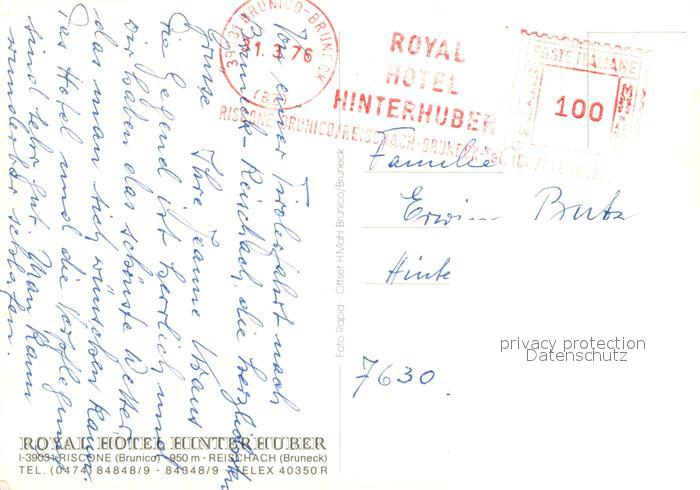 39031 BRUNICO-BRUNECK
1.3.76
(BZ)
ROYAL
HOTEL
HINTERHUBER
RISCONE-BRUNICO/REISCHACH-BRUNECK
POSTE ITALIANE
100
Von einer Tirolerfahrt nach
Bruneck-Reischach, die herzlichsten
Grüsse Ihre Jeanne
Die Gegend ist herrlich und
wir haben das schönste Wetter
das man sich wünschen kann.
Das Hotel und die Verpflegung
sind sehr gut. Man kann
wunderbar schlafen.
Foto Rapid Offset H.Mahl Brunico/Bruneck
Familie
Erwin Butz
Hinte
7630
privacy protection
Datenschutz
ROYAL HOTEL HINTERHUBER
I-39031 RISCONE (Brunico) - 950 m - REISCHACH (Bruneck)
TEL. (0474) 84848/9 - 84348/9 TELEX 40350 R